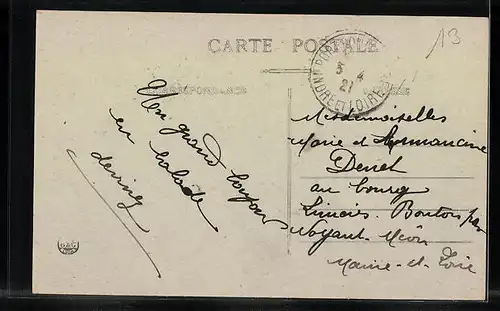 CARTE POSTALE
13
CORRESPONDANCE
5 4
21
INDRE ET LOIRE
Un grand bonjour
en balade
Mesdemoiselles
Marie et Germancine
Denet
au bourg
Limeis Bouton par
Noyant-Méon
Maine-et-Loire